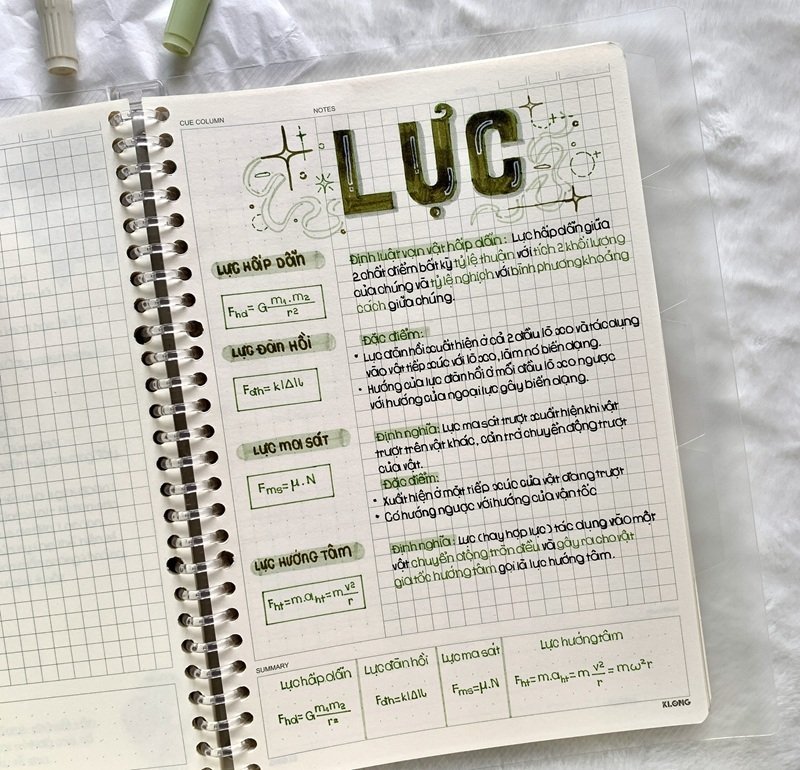 CUE COLUMN
NOTES
LỰC
LỰC HẤP DẪN
F_hd = G m₁.m₂ / r²
Định luật vạn vật hấp dẫn: Lực hấp dẫn giữa
2 chất điểm bất kỳ tỷ lệ thuận với tích 2 khối lượng
của chúng và tỷ lệ nghịch với bình phương khoảng
cách giữa chúng.
LỰC ĐÀN HỒI
F_đh = k|Δl|
Đặc điểm:
• Lực đàn hồi xuất hiện ở cả 2 đầu lò xo và tác dụng
vào vật tiếp xúc với lò xo, làm nó biến dạng.
• Hướng của lực đàn hồi ở mỗi đầu lò xo ngược
với hướng của ngoại lực gây biến dạng.
LỰC MA SÁT
F_ms = μ.N
Định nghĩa: Lực ma sát trượt xuất hiện khi vật
trượt trên vật khác, cản trở chuyển động trượt
của vật.
Đặc điểm:
• Xuất hiện ở mặt tiếp xúc của vật đang trượt
• Có hướng ngược với hướng của vận tốc
LỰC HƯỚNG TÂM
F_ht = m.a_ht = m v²/r
Định nghĩa: Lực (hay hợp lực) tác dụng vào một
vật chuyển động tròn đều và gây ra cho vật
gia tốc hướng tâm gọi là lực hướng tâm.
SUMMARY
Lực hấp dẫn
F_hd = G m₁m₂ / r²
Lực đàn hồi
F_đh = k|Δl|
Lực ma sát
F_ms = μ.N
Lực hướng tâm
F_ht = m.a_ht = m v²/r = mω²r
KLONG